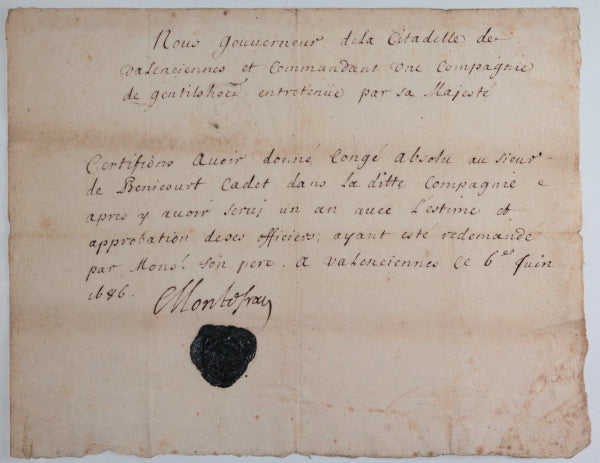 Nous Gouverneur dela Citadelle de
Valenciennes et Commandant Une Compagnie
de gentilshoẽs entretenüe par sa Majesté
Certifions Avoir donné Congé Absolu au sieur
de Benicourt Cadet dans la ditte Compagnie e
apres y avoir seruj un an avec L'estime et
approbation de ses officiers; ayant esté redemande
par Monsr. son pere. A Valenciennes Ce 6e. Juin
1686.